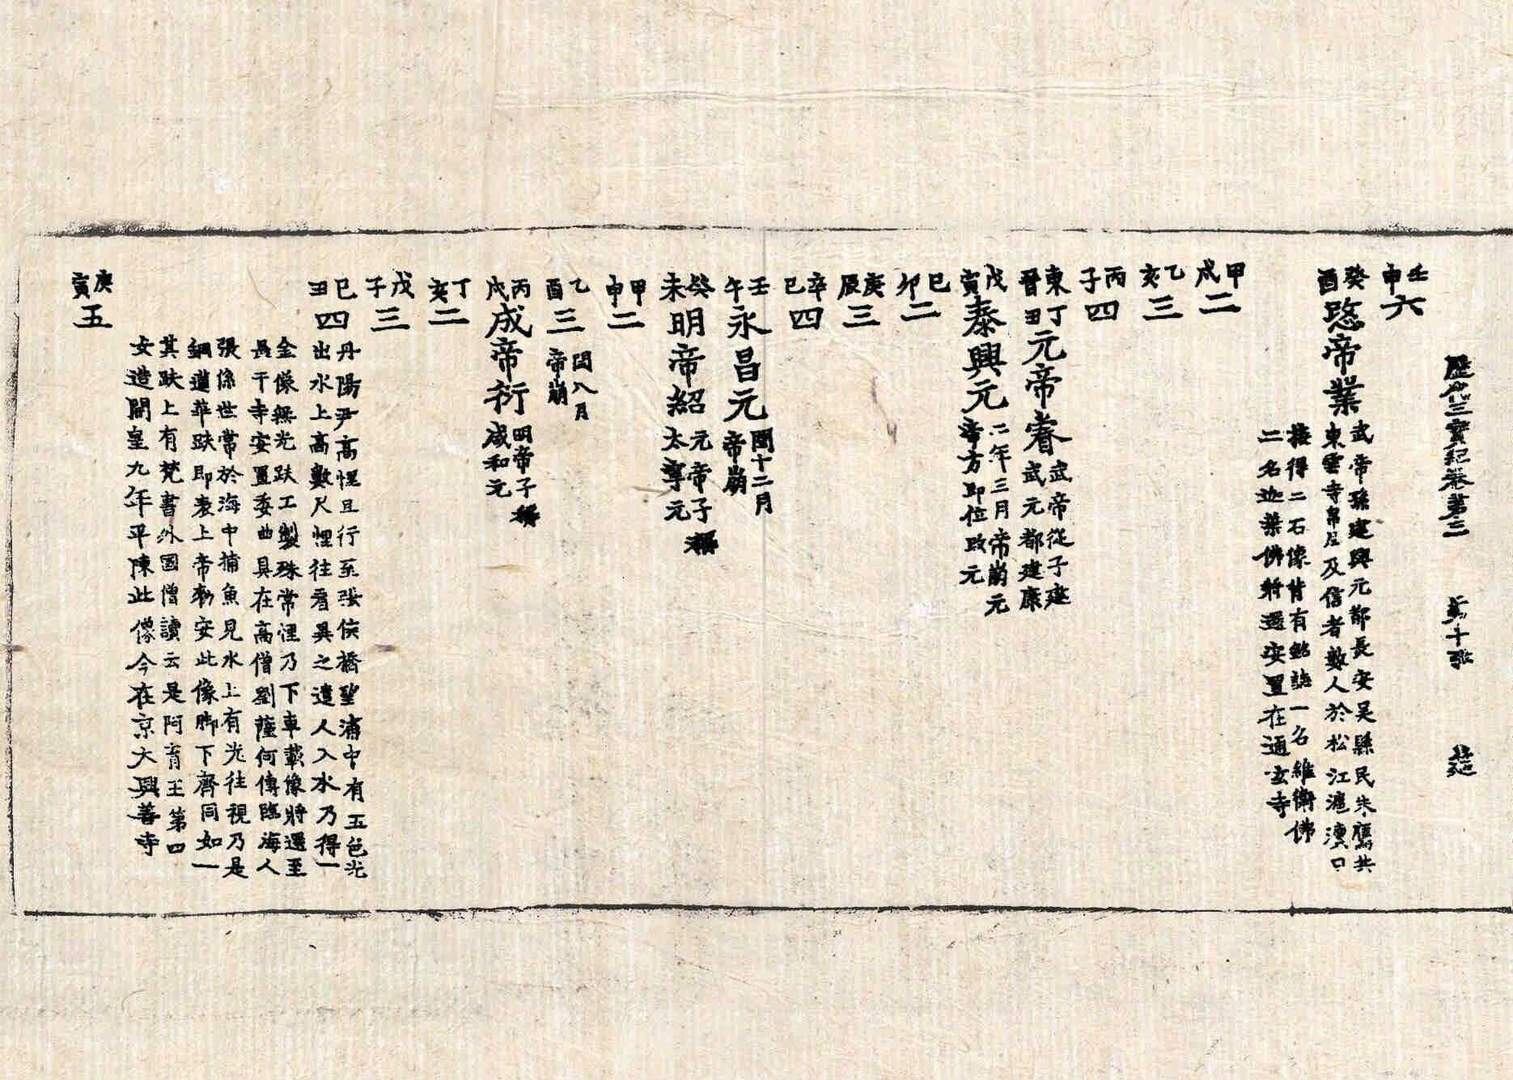 歷代三寶紀卷第三 第十張
壬申六
癸酉愍帝業武帝孫建興元都長安吳縣民朱鷹共
東雲寺帛尼及信者數人於松江滬瀆口
接得二石像背有銘誌一名維衛佛
二名迦葉佛將還安置在通玄寺
甲戌二
乙亥三
丙子四
東晉
丁丑元帝睿武帝從子建
武元都建康
戊寅泰興元二年三月帝崩元
帝方即位改元
巳卯二
庚辰三
辛巳四
壬午永昌元閏十二月
帝崩
癸未明帝紹元帝子稱
太寧元
甲申二
乙酉三閏八月
帝崩
丙戌成帝衍明帝子稱
咸和元
丁亥二
戊子三
巳丑四丹陽尹高悝旦行至張侯橋望浦中有五色光
出水上高數尺悝往看異之遣人入水乃得一
金像無光趺工製殊常悝乃下車載像將還至
長干寺安置委曲具在高僧劉薩何傳臨海人
張係世常於海中捕魚見水上有光往視乃是
銅蓮華趺即表上帝勑安此像脚下齊同如一
其趺上有梵書外國僧讀云是阿育王第四
女造開皇九年平陳此像今在京大興善寺
庚寅五